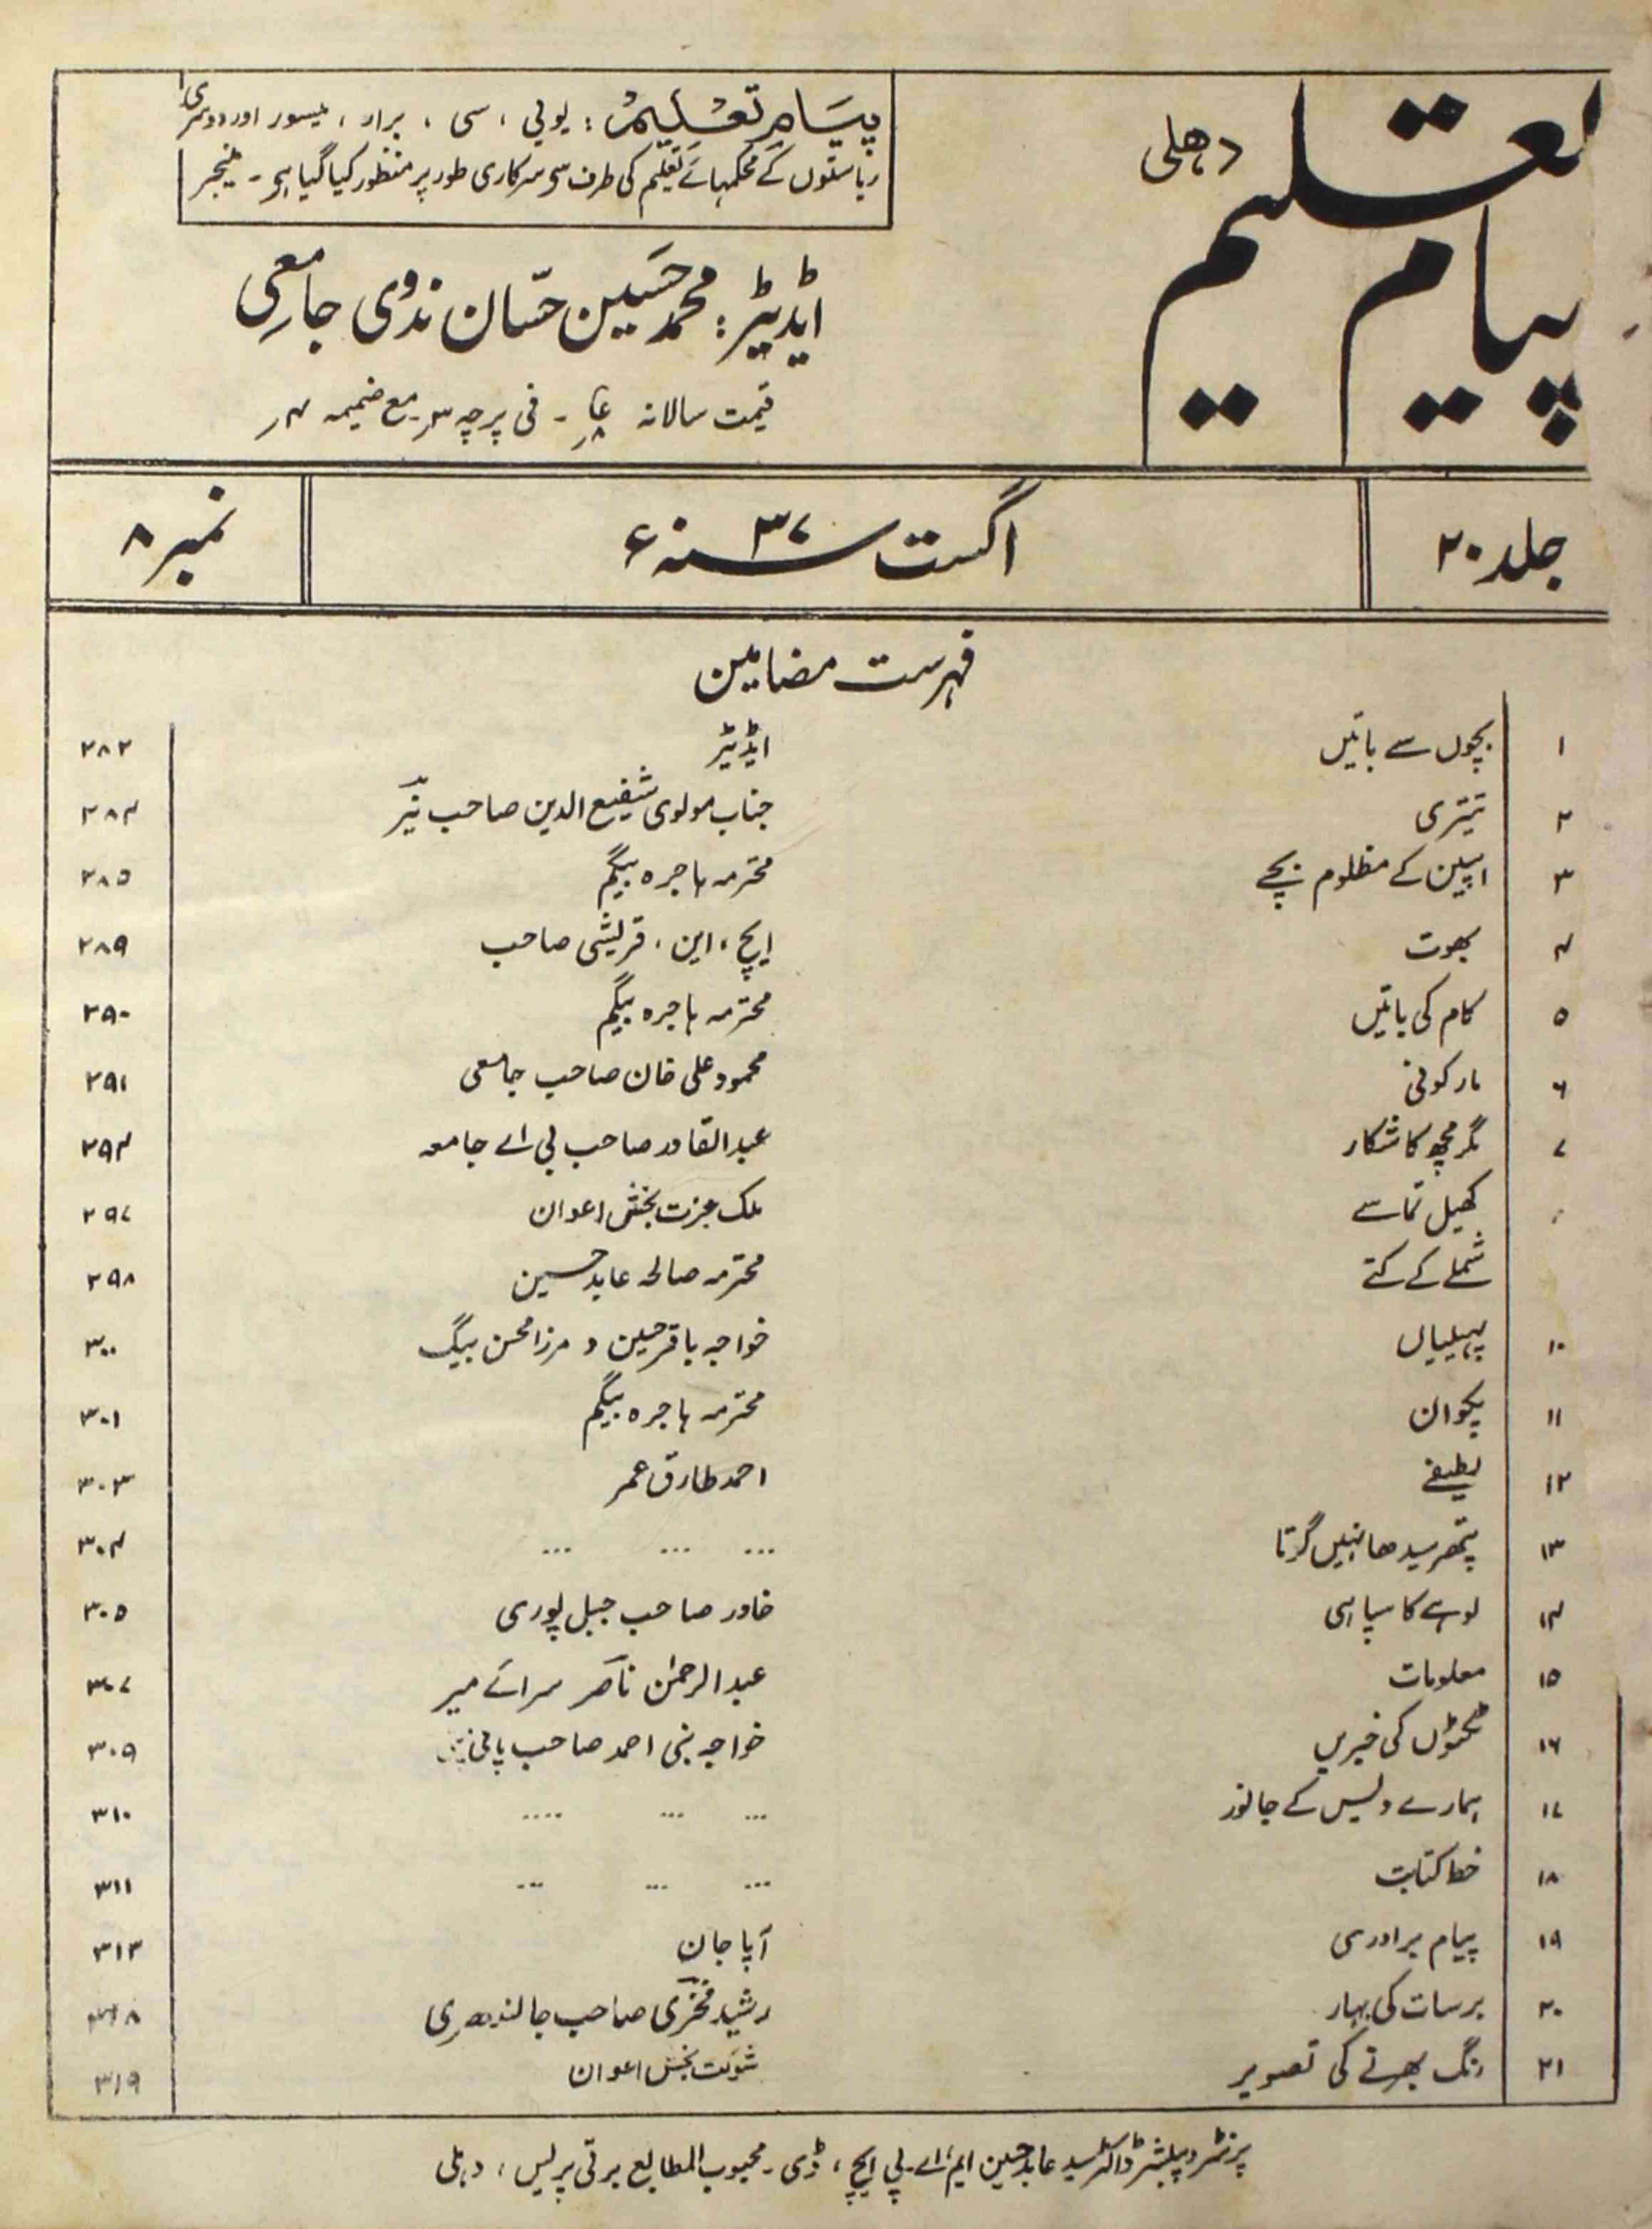 پیام تعلیم
دهلی
پیَامِ تعْلِیمْ : یوپی ، سی ، برار ، میسور اور دوسری
ریاستوں کے محکمہائے تعلیم کی طرف سے سرکاری طور پر منظور کیا گیا ہے ۔ منیجر
ایڈیٹر : محمد حسَین حسّان ندوی جامعی
قیمت سالانہ ۔ فی پرچہ ۳ر مع ضمیمہ ۴ر
جلد ۲۰
اگست سنہ ۳۷ء
نمبر ۸
فہرست مضامین
۱ بچوں سے باتیں ایڈیٹر ۲۸۲
۲ تیتری جناب مولوی شفیع الدین صاحب نیّر ۲۸۴
۳ اسپین کے مظلوم بچے محترمہ ہاجرہ بیگم ۲۸۵
۴ بھوت ایچ ، این ، قریشی صاحب ۲۸۹
۵ کام کی باتیں محترمہ ہاجرہ بیگم ۲۹۰
۶ مارکونی محمود علی خان صاحب جامعی ۲۹۱
۷ مگر مچھ کا شکار عبدالقادر صاحب بی اے جامعہ ۲۹۴
کھیل تماشے ملک عزت بخش اعوان ۲۹۷
شملے کے کتے محترمہ صالحہ عابد حسین ۲۹۸
۱۰ پہیلیاں خواجہ باقر حسین و مرزا محسن بیگ ۳۰۰
۱۱ پکوان محترمہ ہاجرہ بیگم ۳۰۱
۱۲ لطیفے احمد طارق عمر ۳۰۳
۱۳ پتھر سیدھا نہیں گرتا ... ... ... ۳۰۴
۱۴ لوہے کا سپاہی خاور صاحب جبل پوری ۳۰۵
۱۵ معلومات عبدالرحمٰن ناصر سرائے میر ۳۰۷
۱۶ ٹکٹوں کی خبریں خواجہ بنی احمد صاحب ۳۰۹
۱۷ ہمارے دیس کے جانور ... ... .... ۳۱۰
۱۸ خط کتابت ... ... ... ۳۱۱
۱۹ پیام برادری آپا جان ۳۱۳
۲۰ برسات کی بہار رشید فخری صاحب جالندھری ۳۱۸
۲۱ رنگ بھرنے کی تصویر شوکت بخش اعوان ۳۱۹
پرنٹر و پبلشر ڈاکٹر سید عابد حسین ایم ، اے ۔ پی ایچ ، ڈی ۔ محبوب المطابع برقی پریس ، دہلی